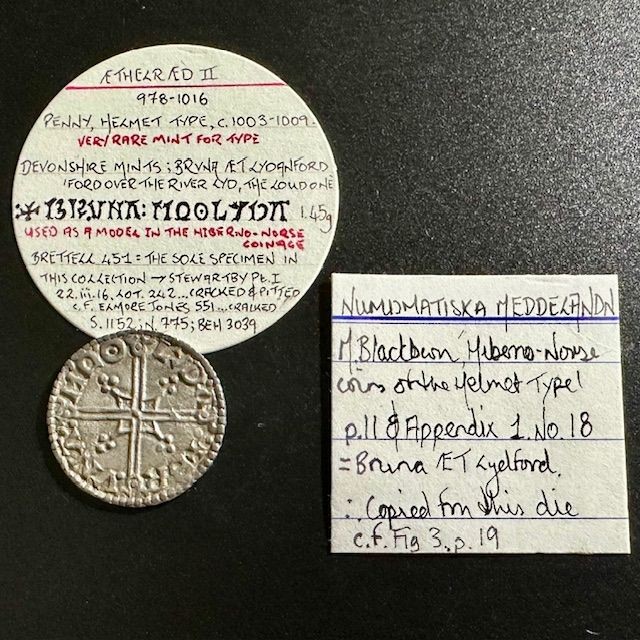 ÆTHELRÆD II
978-1016
PENNY, HELMET TYPE, C.1003-1009.
VERY RARE MINT FOR TYPE
DEVONSHIRE MINTS; BRVNA ÆT LYDANFORD
'FORD OVER THE RIVER LYD, THE LOUD ONE
BRVNA: MΩOLYDA 1.45g
USED AS A MODEL IN THE HIBERNO-NORSE
COINAGE
BRETTELL 451 = THE SOLE SPECIMEN IN
THIS COLLECTION → STEWARTBY Pt.I
22.iii.16, LOT. 242... CRACKED & PITTED
C.F. ELMORE JONES 551... CRACKED
S.1152; N.775; BEH 3039
NUMUMATISKA MEDDELANDN
M. Blackburn 'Hiberno-Norse
coins of the Helmet Type'
p.11 & Appendix 1. No. 18
= Bruna ÆT Lyelford.
∴ Copied fm this die
c.f. Fig 3. p. 19